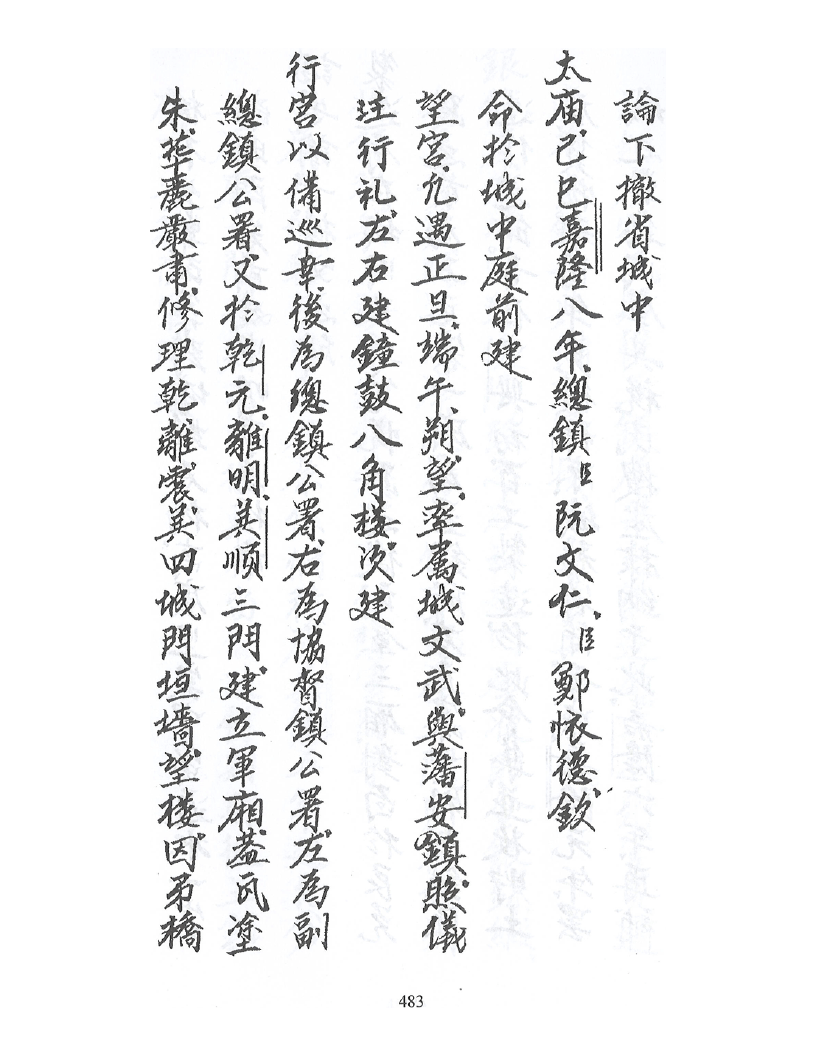 論下撤省城中
太庙己巳嘉隆八年總鎮臣阮文仁臣鄭怀德欽
命於城中庭前建
望宮凢遇正旦端午朔望率属城文武與藩安鎮照儀
注行礼左右建鐘鼓八角楼次建
行営以備巡幸後為總鎮公署右為協督鎮公署左為副
總鎮公署又於乾元離明巽順三門建立軍廂盖瓦塗
朱華麗嚴肅修理乾離震巽四城門垣墻望楼因弟橋
483